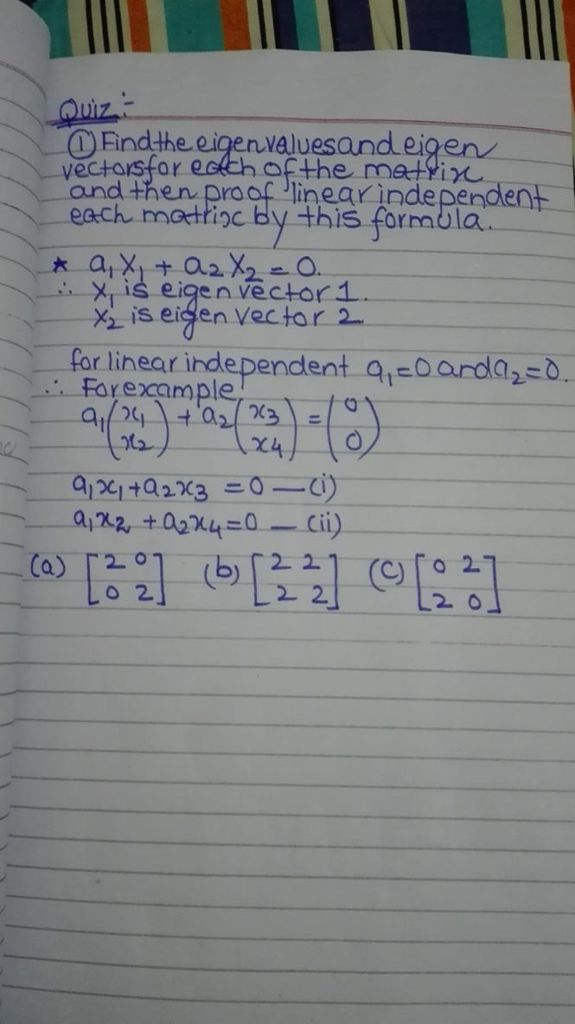 Quiz:-
① Find the eigen values and eigen
vectors for each of the matrix
and then proof linear independent
each matrix by this formula.
* a₁X₁ + a₂X₂ = 0.
∴ X₁ is eigen vector 1.
X₂ is eigen vector 2
for linear independent a₁=0 and a₂=0.
∴ For example
a₁(x₁ x₂) + a₂(x₃ x₄) = (0 0)
a₁x₁ + a₂x₃ = 0 — (i)
a₁x₂ + a₂x₄ = 0 — (ii)
(a) [2 0 (b) [2 2 (c) [0 2
0 2] 2 2] 2 0]